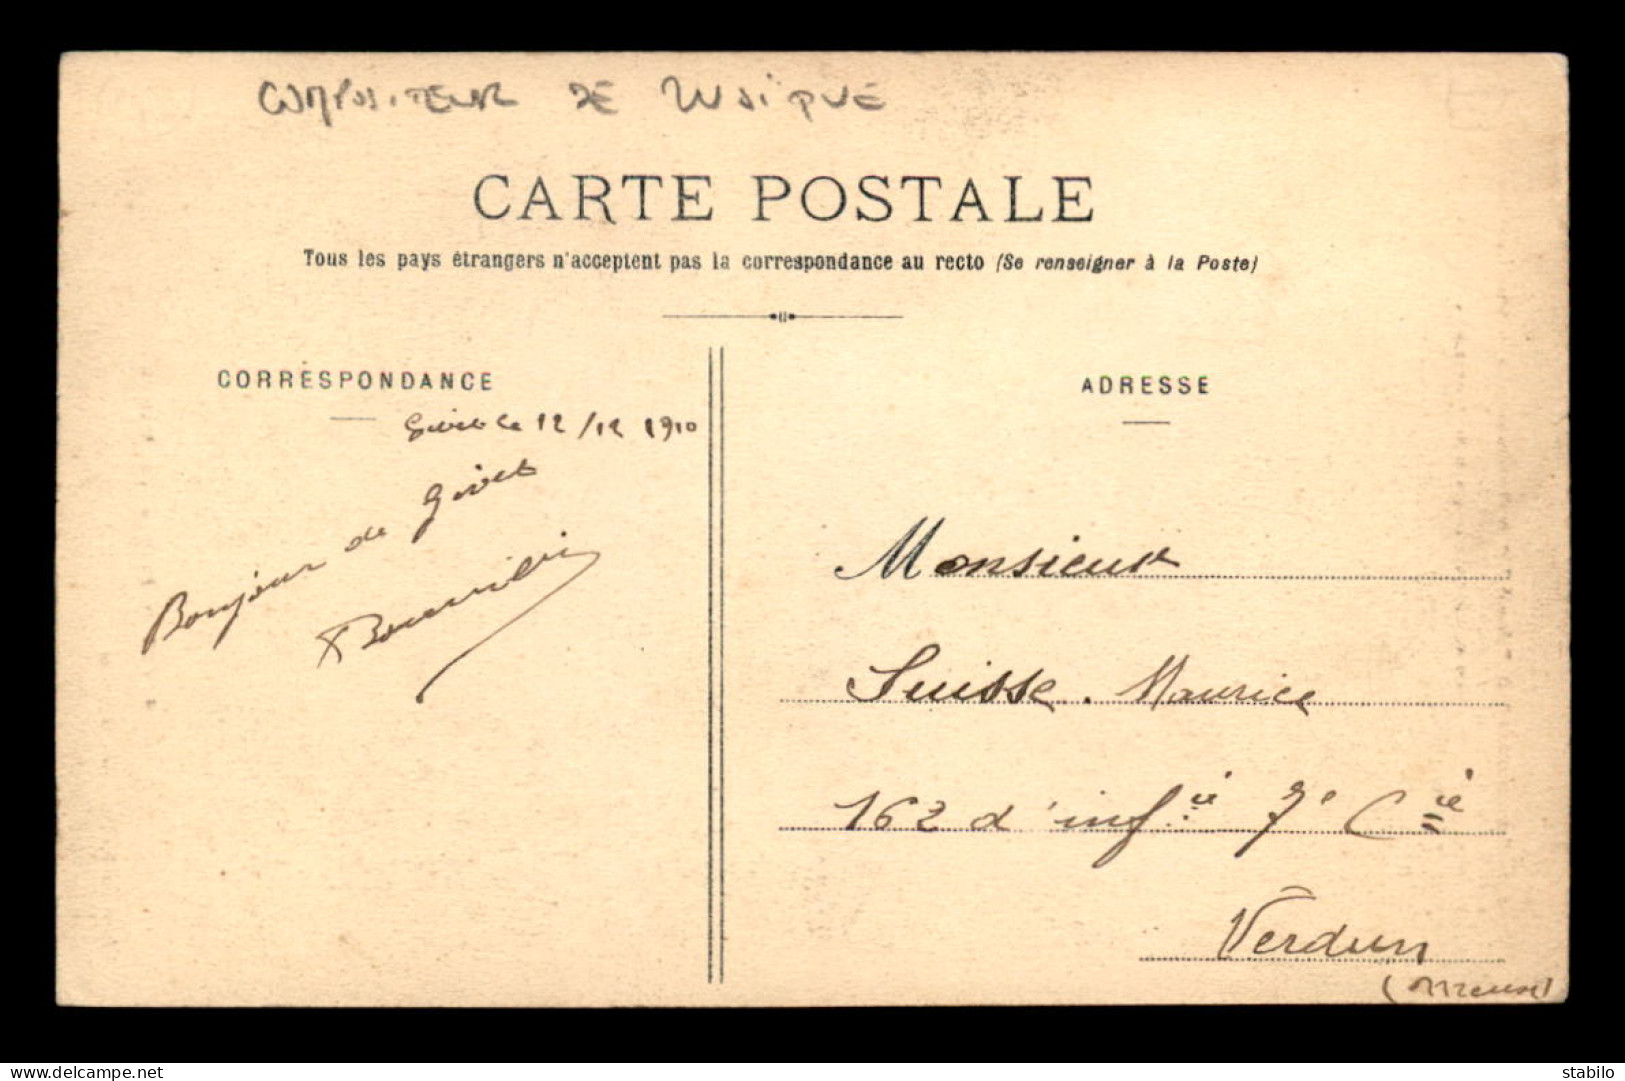 COMPOSITEUR DE MUSIQUE
CARTE POSTALE
Tous les pays étrangers n'acceptent pas la correspondance au recto (Se renseigner à la Poste)
CORRESPONDANCE
Givet le 12/12 1910
Bonjour de Givet
ADRESSE
Monsieur
Suisse. Maurice
162 d'inf.ie 7e Cie
Verdun
(Meuse)
www.delcampe.net
stabilo